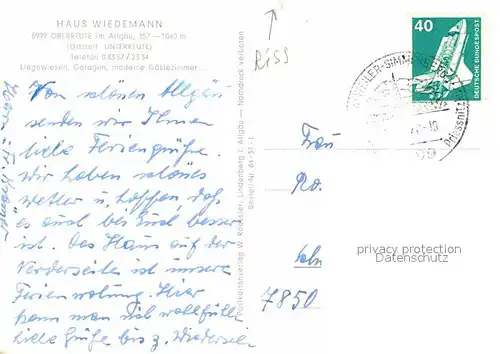 HAUS WIEDEMANN
8999 OBERREUTE im Allgäu, 857 - 1040 m
(Ortsteil UNTERREUTE)
Telefon 0 83 87 / 23 34
Liegewiesen, Garagen, moderne Gästezimmer
Vom schönen Allgäu
senden wir Ihnen
liebe Feriengrüße.
Wir haben schönes
Wetter u. hoffen, daß
es auch bei Euch besser
ist. Das Haus auf der
Vorderseite ist unsere
Ferienwohnung. Hier
kann man sich wohlfühlen
Liebe Grüße bis z. Wiederseh
Verlagspostkartenverlag Lindenberg i. Allgäu — Nachdruck verboten
Bestell-Nr. 64 51
R159
40
DEUTSCHE BUNDESPOST
Frau
Ro.
7850
privacy protection
Dalmasso.com